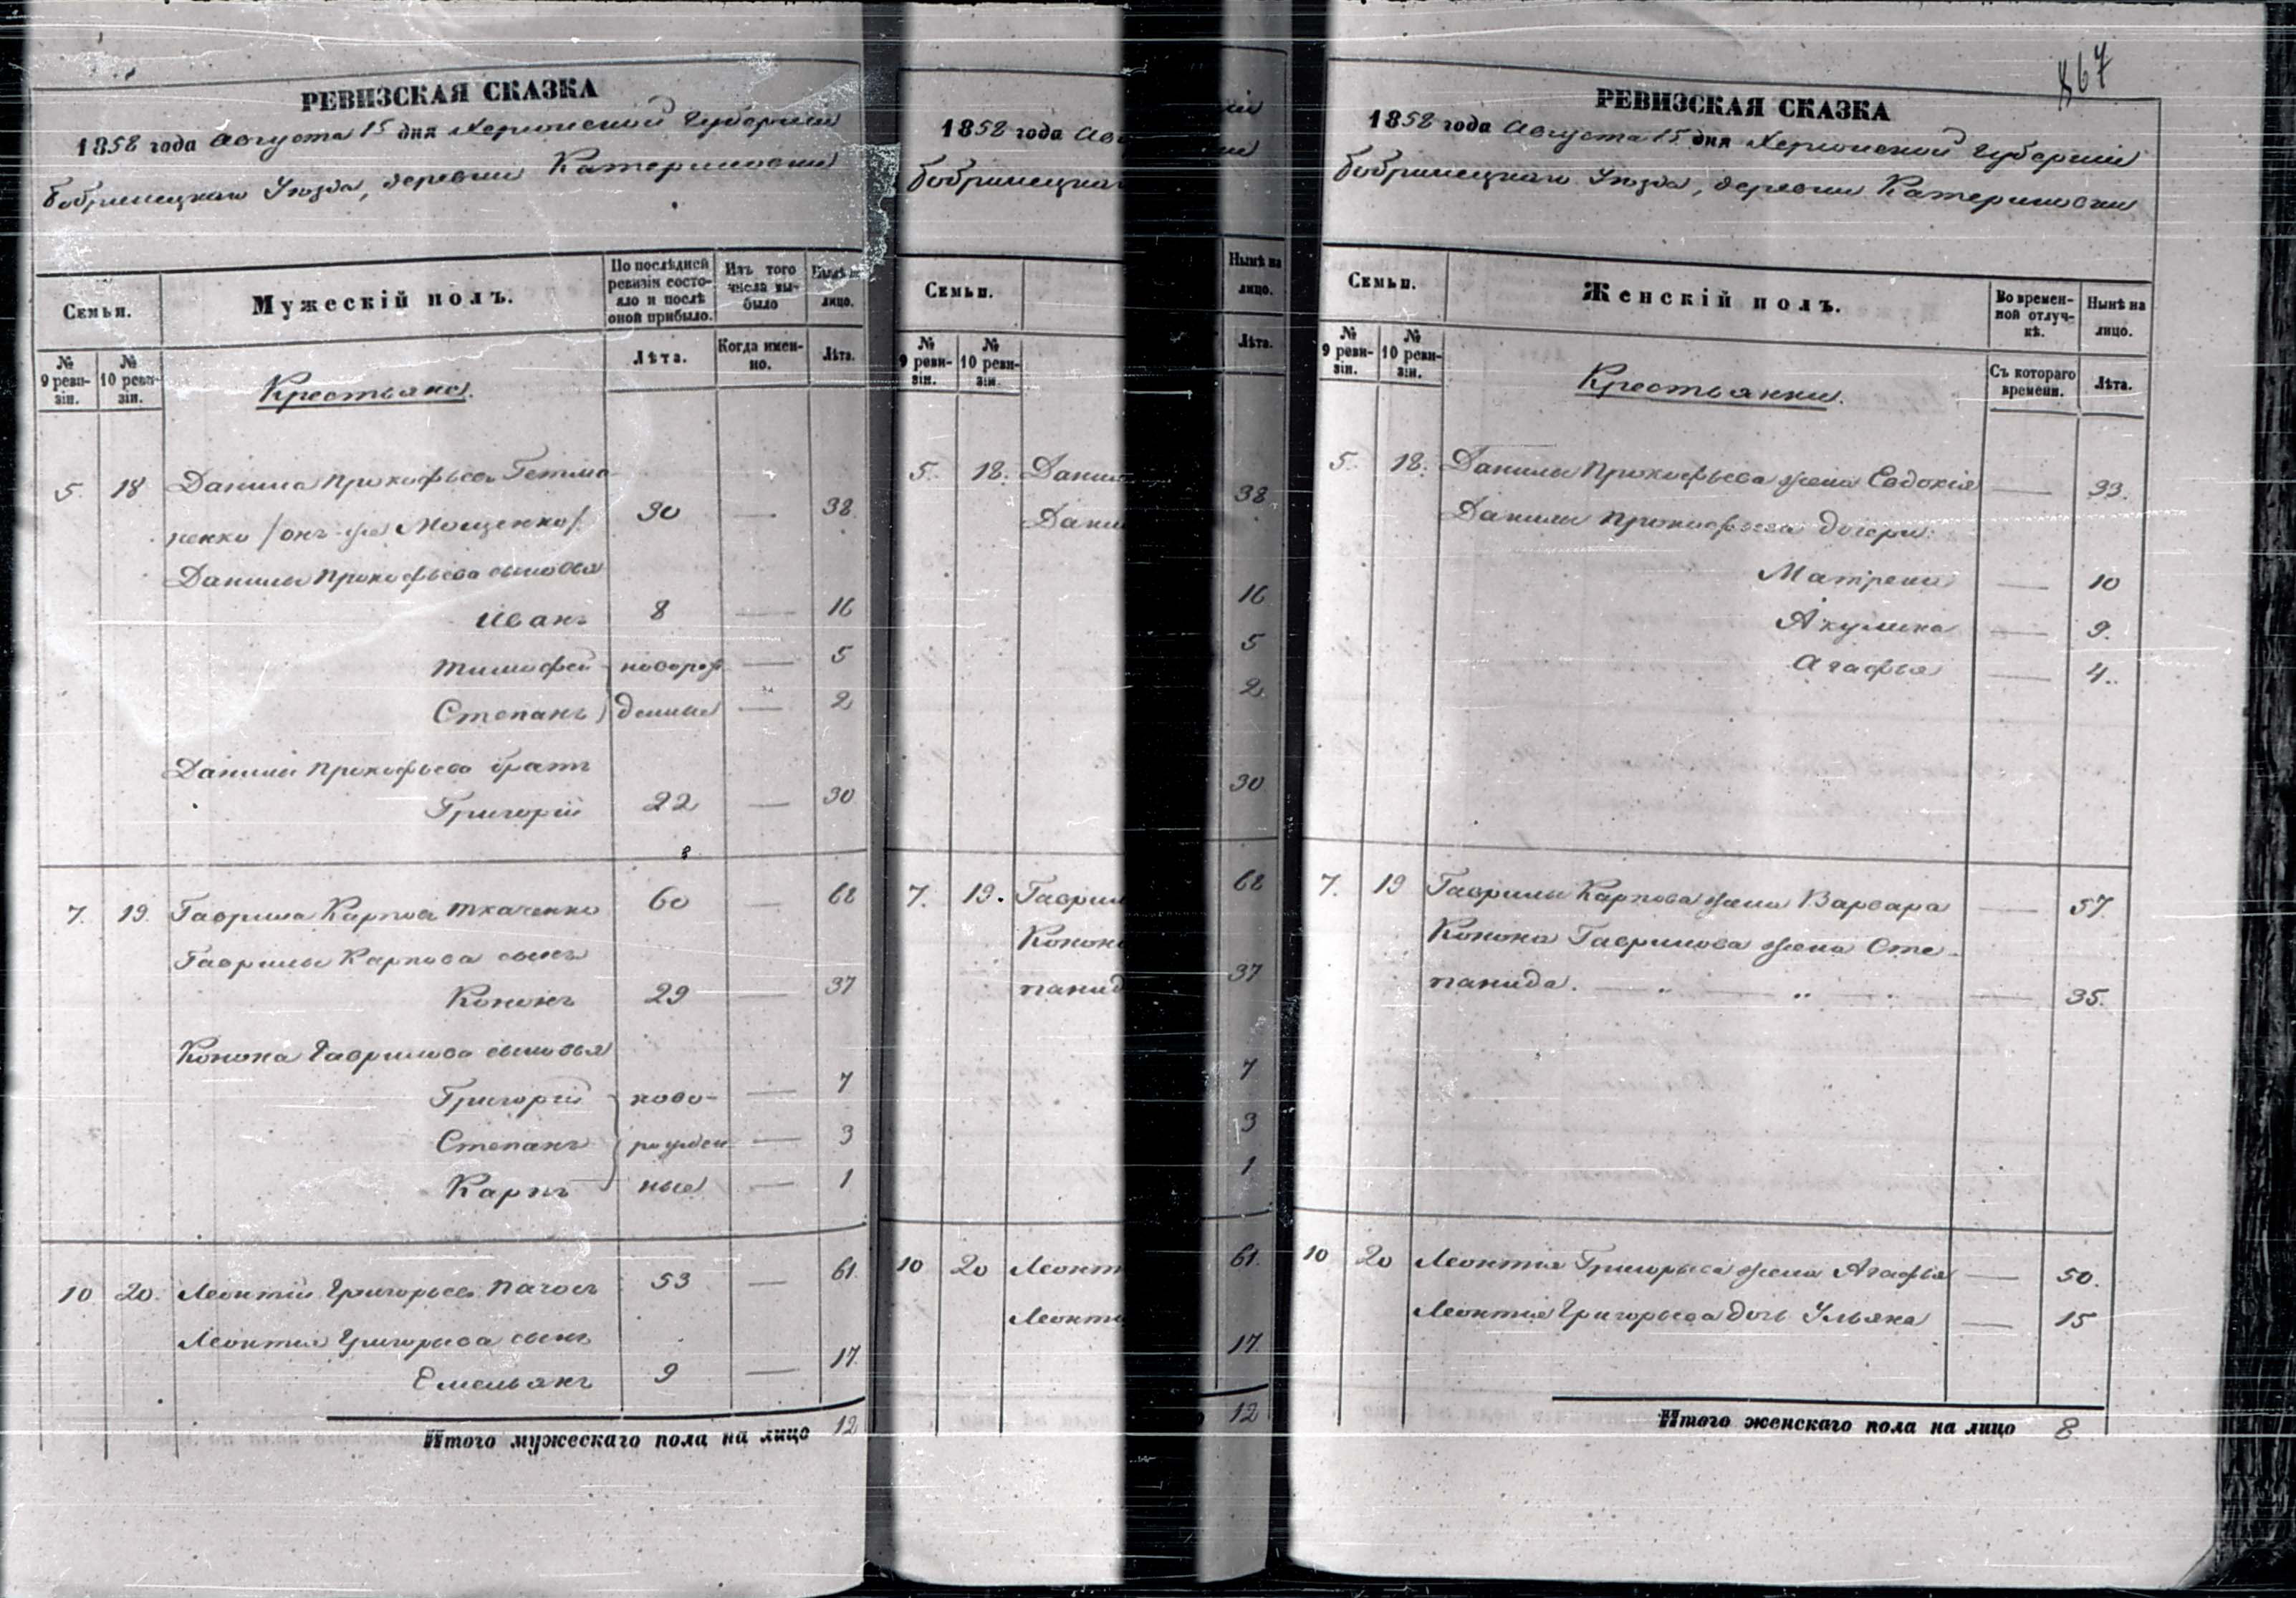 РЕВИЗСКАЯ СКАЗКА
1858 года Августа 15 дня Херсонской Губерніи
Бобринецкаго Уѣзда, деревни Катериновки
Семьи.
Мужескій полъ.
По послѣдней ревизіи состояло и послѣ оной прибыло.
Изъ того числа выбыло
Нынѣ на лицо.
№ 9 ревизіи.
№ 10 ревизіи.
Крестьяне.
Лѣта.
Когда именно.
Лѣта.
5 18 Данила Прокофьевъ Гетма
ненко /онъ же Мощенко/ 30 — 38
Данилы Прокофьева сыновья
Иванъ 8 — 16
Тимофей новорож — 5
Степанъ денные — 2
Данилы Прокофьева братъ
Григорій 22 — 30
7. 19. Гаврила Карповъ Ткаченко 60 — 68
Гаврилы Карпова сынъ
Кононъ 29 — 37
Конона Гаврилова сыновья
Григорій ново- — 7
Степанъ рожден — 3
Карпъ ные — 1
10 20. Леонтій Григорьевъ 53 — 61
Леонтія Григорьева сынъ
Емельянъ 9 — 17
Итого мужескаго пола на лицо 12
1858 года Авг
Бобринецкаг
Семьи.
№ 9 ревизіи.
№ 10 ревизіи.
5. 18. Данил
Данил
7. 19. Гаврил
Конон
панид
10 20 Леонт
Леонт
Нынѣ на лицо.
Лѣта.
38
16
5
2
30
68
37
7
3
1
61
17
12
867
РЕВИЗСКАЯ СКАЗКА
1858 года Августа 15 дня Херсонской Губерніи
Бобринецкаго Уѣзда, деревни Катериновки
Семьи.
Женскій полъ.
Во временной отлучкѣ.
Нынѣ на лицо.
№ 9 ревизіи.
№ 10 ревизіи.
Крестьянки.
Съ котораго времени.
Лѣта.
5. 18. Данилы Прокофьева жена Евдокія — 33.
Данилы Прокофьева дочери
Матрена — 10
Акулина — 9.
Агафья — 4.
7. 19 Гаврилы Карпова жена Варвара — 57
Конона Гаврилова жена Сте-
панида. — „ — „ — 35.
10 20 Леонтія Григорьева жена Агафья — 50.
Леонтія Григорьева дочь Ульяна — 15
Итого женскаго пола на лицо 8